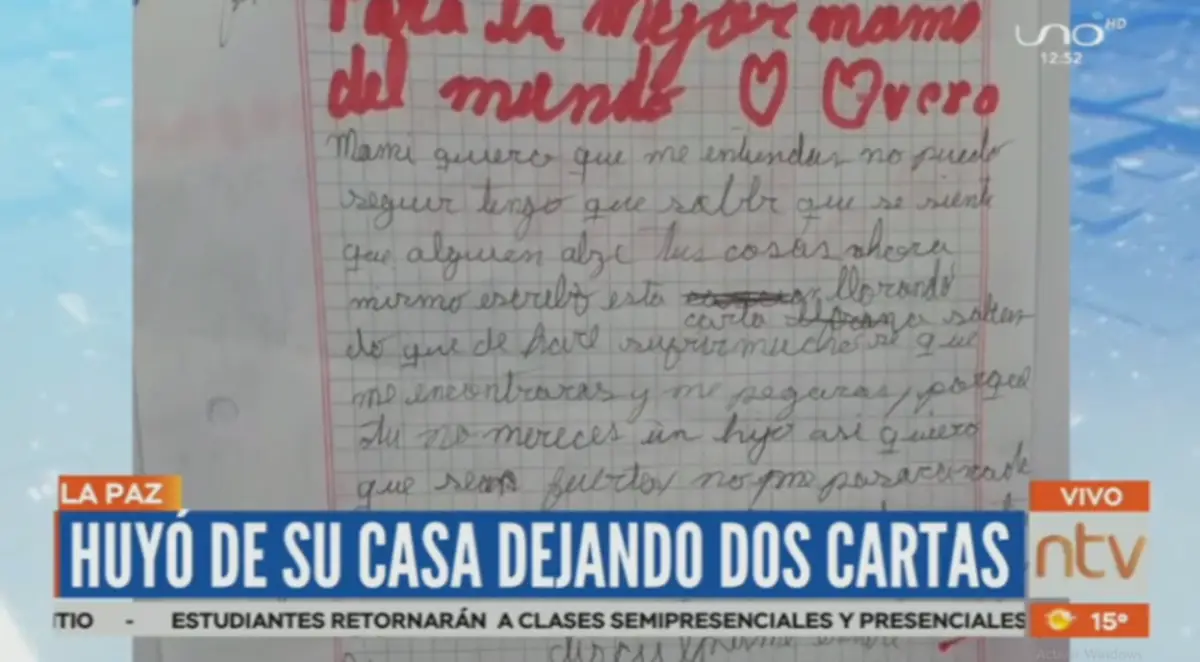 Para la mejor mama
del mundo vero
UNO HD
12:52
Mami quiero que me entiendas no puedo
seguir tengo que saber que se siente
que alguien alze tus cosas ahora
mirmo escribo esta llorando
carta saben
do que de haré sufrir mucho se que
me encontraras y me pegaras, porque
tu no mereces un hijo asi quiero
que seas fuerte no me pasara nada
LA PAZ
VIVO
HUYÓ DE SU CASA DEJANDO DOS CARTAS
ntv
ITIO - ESTUDIANTES RETORNARÁN A CLASES SEMIPRESENCIALES Y PRESENCIALES
15°